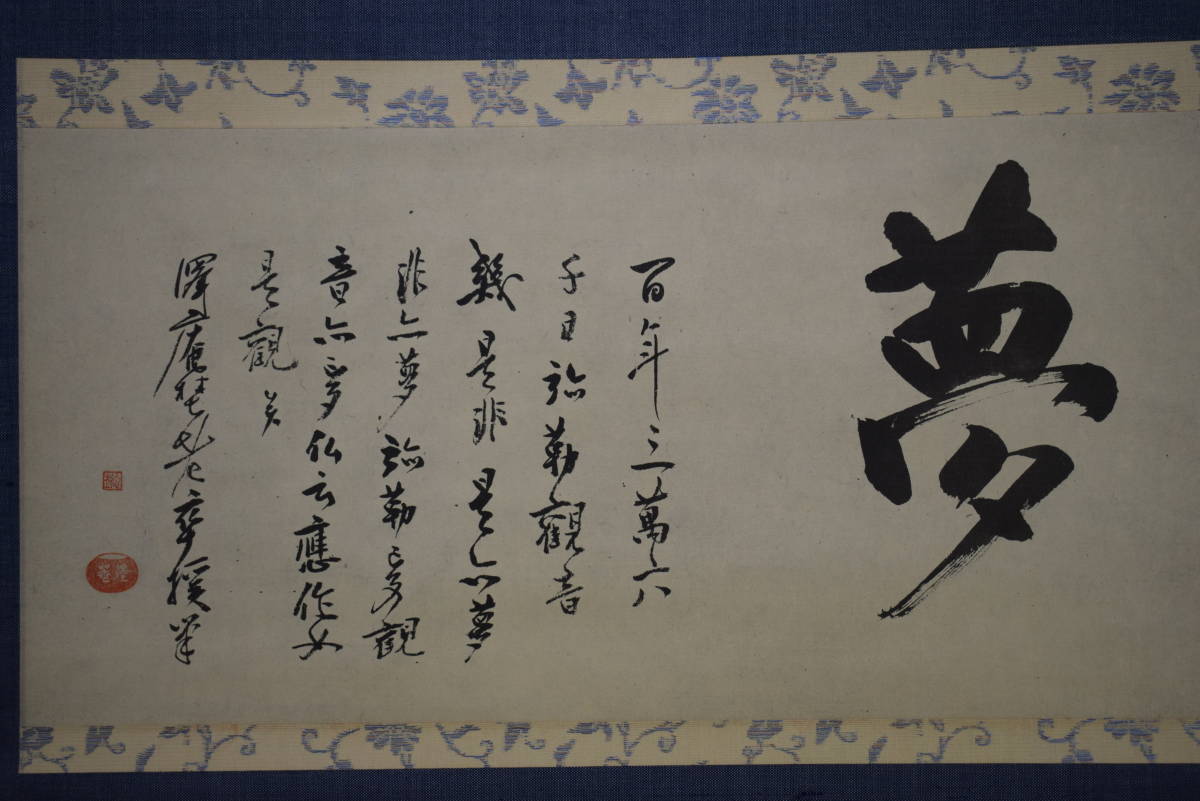 夢
百年三萬六
千日弥勒觀音
幾是非是亦夢
非亦夢弥勒亦夢觀
音亦夢仏云應作如
是觀矣
澤庵野老卒援筆